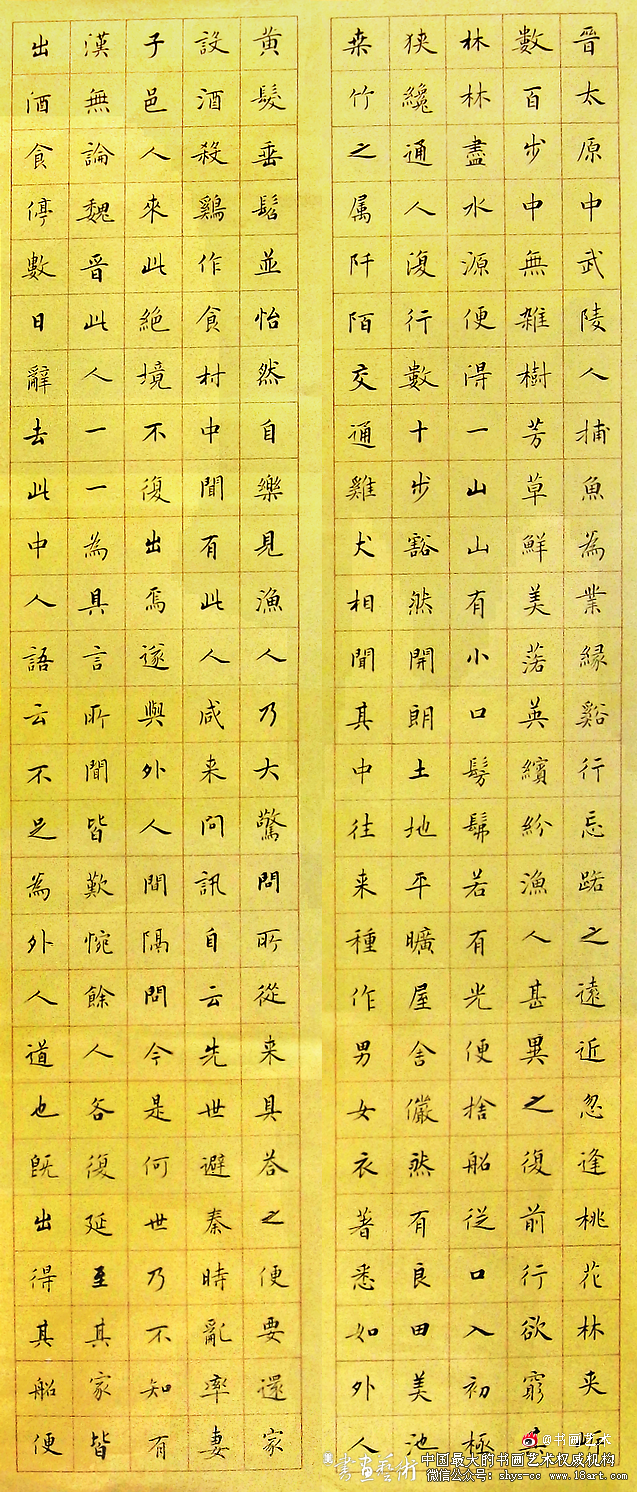 晉太原中武陵人捕魚為業緣谿行忘路之遠近忽逢桃花林夹岸
數百步中無雜樹芳草鮮美落英繽紛漁人甚異之復前行欲窮其
林林盡水源便得一山山有小口髣髴若有光便捨船從口入初極
狹纔通人復行數十步豁然開朗土地平曠屋舍儼然有良田美池
桒竹之属阡陌交通雞犬相聞其中往来種作男女衣著悉如外人
黄髮垂髫並怡然自樂見漁人乃大驚問所從来具荅之便要還家
設酒殺鷄作食村中聞有此人咸来問訊自云先世避秦時亂率妻
子邑人來此絶境不復出焉遂與外人間隔問今是何世乃不知有
漢無論魏晉此人一一為具言所聞皆歎惋餘人各復延至其家皆
出酒食停數日辭去此中人語云不足為外人道也既出得其船便
@书画艺术
書畫藝術
中国最大的书画艺术权威机构
微信公众号：shys-cc www.18art.com